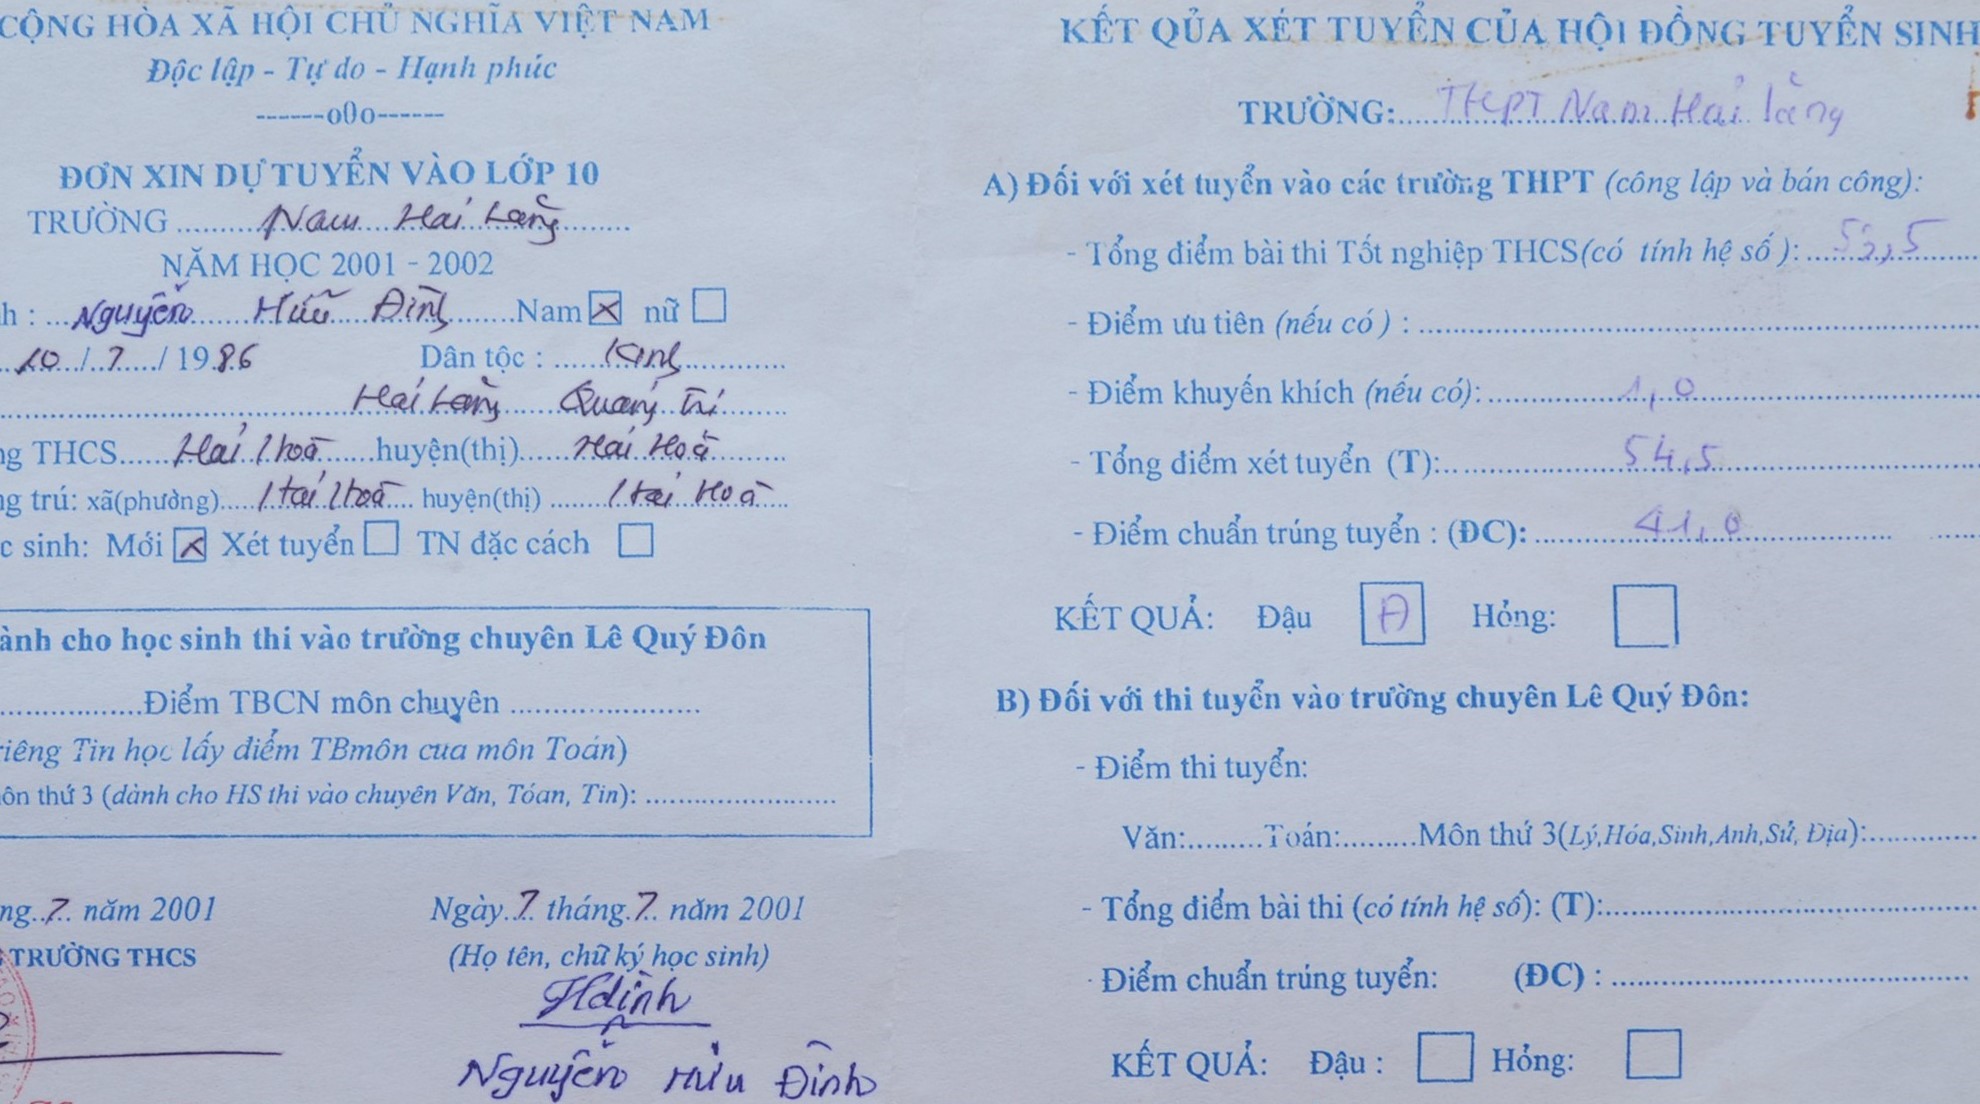 CỘNG HÒA XÃ HỘI CHỦ NGHĨA VIỆT NAM
Độc lập - Tự do - Hạnh phúc
------o0o------
ĐƠN XIN DỰ TUYỂN VÀO LỚP 10
TRƯỜNG .......... Nam Hải Lăng ..........
NĂM HỌC 2001 - 2002
h : ... Nguyễn Hữu Đình ........ Nam ☒ nữ ☐
... 10 / 7 / 1986 Dân tộc : ..... Kinh ..........
.......... Hải Lăng Quảng Trị ..........
ng THCS ..... Hải Hoà ..... huyện(thị) ..... Hải Hoà ..........
ng trú: xã(phường) .... Hải Hoà .... huyện(thị) ....... Hải Hoà ....
c sinh: Mới ☒ Xét tuyển ☐ TN đặc cách ☐
ành cho học sinh thi vào trường chuyên Lê Quý Đôn
................Điểm TBCN môn chuyên ......................
riêng Tin học lấy điểm TBmôn cua môn Toán)
ôn thứ 3 (dành cho HS thi vào chuyên Văn, Tóan, Tin): ........................
ng..7.. năm 2001
TRƯỜNG THCS
Ngày..7.. tháng.7.. năm 2001
(Họ tên, chữ ký học sinh)
Hđình
Nguyễn Hữu Đình
KẾT QỦA XÉT TUYỂN CỦA HỘI ĐỒNG TUYỂN SINH
TRƯỜNG:..... THPT Nam Hải lăng
A) Đối với xét tuyển vào các trường THPT (công lập và bán công):
- Tổng điểm bài thi Tốt nghiệp THCS(có tính hệ số ): ..... 53,5 .....
- Điểm ưu tiên (nếu có ) : ..............................
- Điểm khuyến khích (nếu có): ............ 1,0 ............
- Tổng điểm xét tuyển (T):............ 54,5 ............
- Điểm chuẩn trúng tuyển : (ĐC): ............ 41,0 ............
KẾT QUẢ: Đậu Đ Hỏng: ☐
B) Đối với thi tuyển vào trường chuyên Lê Quý Đôn:
- Điểm thi tuyển:
Văn:.........Toán:.........Môn thứ 3(Lý,Hóa,Sinh,Anh,Sử, Địa):............
- Tổng điểm bài thi (có tính hệ số): (T):..............................
- Điểm chuẩn trúng tuyển: (ĐC) : ..............................
KẾT QUẢ: Đậu : ☐ Hỏng: ☐